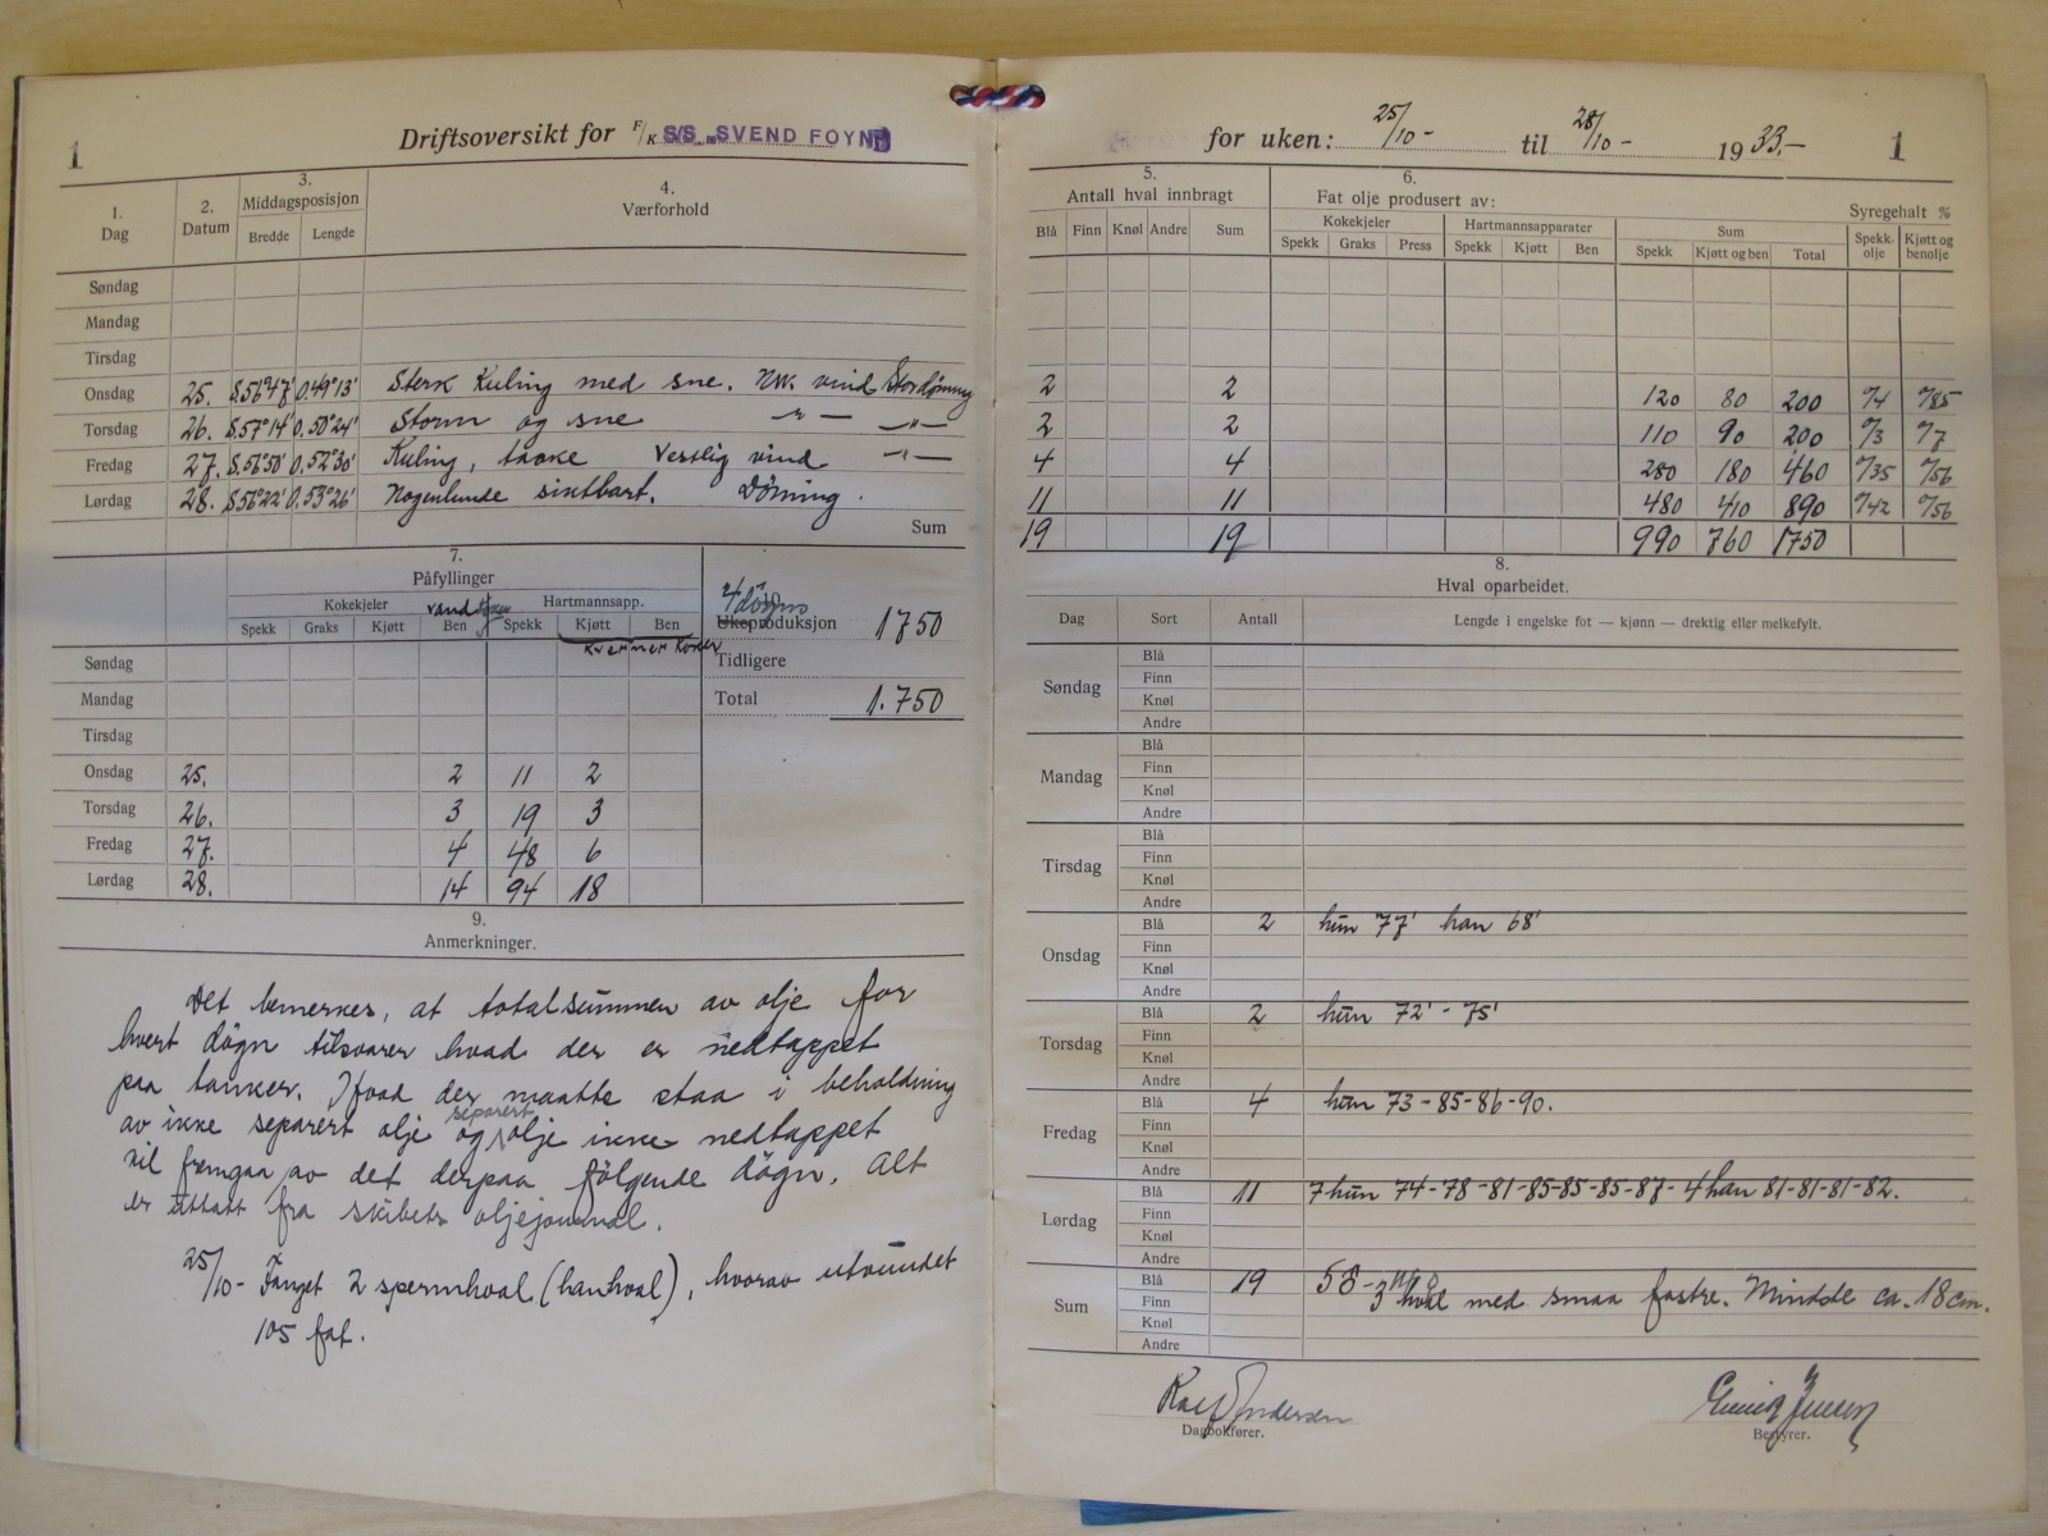 1 Driftsoversikt for F/K S/S "SVEND FOYN"
for uken: 25/10- til 28/10- 1933.- 1
1. Dag 2. Datum 3. Middagsposisjon Bredde Lengde 4. Værforhold
Søndag
Mandag
Tirsdag
Onsdag 25. S.56°47' O.49°13' Sterk Kuling med sne. NW. vind Stordönning
Torsdag 26. S.57°14' O.50°24' Storm og sne -"- -"-
Fredag 27. S.56°50' O.52°30' Kuling, taake Vestlig vind -"-
Lørdag 28. S56°22' O.53°26' Nogenlunde siktbart. Dönning.
Sum
5. Antall hval innbragt
Blå Finn Knøl Andre Sum
6. Fat olje produsert av:
Kokekjeler Hartmannsapparater Sum Syregehalt %
Spekk Graks Press Spekk Kjøtt Ben Spekk Kjøtt og ben Total Spekk-olje Kjøtt og benolje
2 2 120 80 200 0/4 0/85
2 2 110 90 200 0/3 0/7
4 4 280 180 460 0/35 0/56
11 11 480 410 890 0/42 0/56
19 19 990 760 1750
7. Påfyllinger
Kokekjeler Hartmannsapp.
vand
Spekk Graks Kjøtt Ben Spekk Kjøtt Ben
Kverner Koker
Søndag
Mandag
Tirsdag
Onsdag 25. 2 11 2
Torsdag 26. 3 19 3
Fredag 27. 4 48 6
Lørdag 28. 14 94 18
4 dögns
Ukeproduksjon 1750
Tidligere
Total 1.750
9.
Anmerkninger.
Det bemerkes, at totalsummen av olje for
hvert dögn tilsvarer hvad der er nedtappet
paa tanker. Hvad der maatte staa i beholdning
av ikke separert olje og separert olje ikke nedtappet
vil fremgaa av det derpaa fölgende dögn. Alt
er uttatt fra skibets oljejournal.
25/10- Fanget 2 spermhval (hanhval), hvorav utvundet
105 fat.
8.
Hval oparbeidet.
Dag Sort Antall Lengde i engelske fot — kjønn — drektig eller melkefylt.
Søndag Blå
Finn
Knøl
Andre
Mandag Blå
Finn
Knøl
Andre
Tirsdag Blå
Finn
Knøl
Andre
Onsdag Blå 2 hun 77' han 68'
Finn
Knøl
Andre
Torsdag Blå 2 hun 72' - 75'
Finn
Knøl
Andre
Fredag Blå 4 hun 73-85-86-90.
Finn
Knøl
Andre
Lørdag Blå 11 7 hun 74-78-81-85-85-85-87- 4 han 81-81-81-82.
Finn
Knøl
Andre
Sum Blå 19 3 hval med smaa fostre. Mindste ca. 18 cm.
Finn
Knøl
Andre
Andersen
Dagbokfører.
Jensen
Bestyrer.